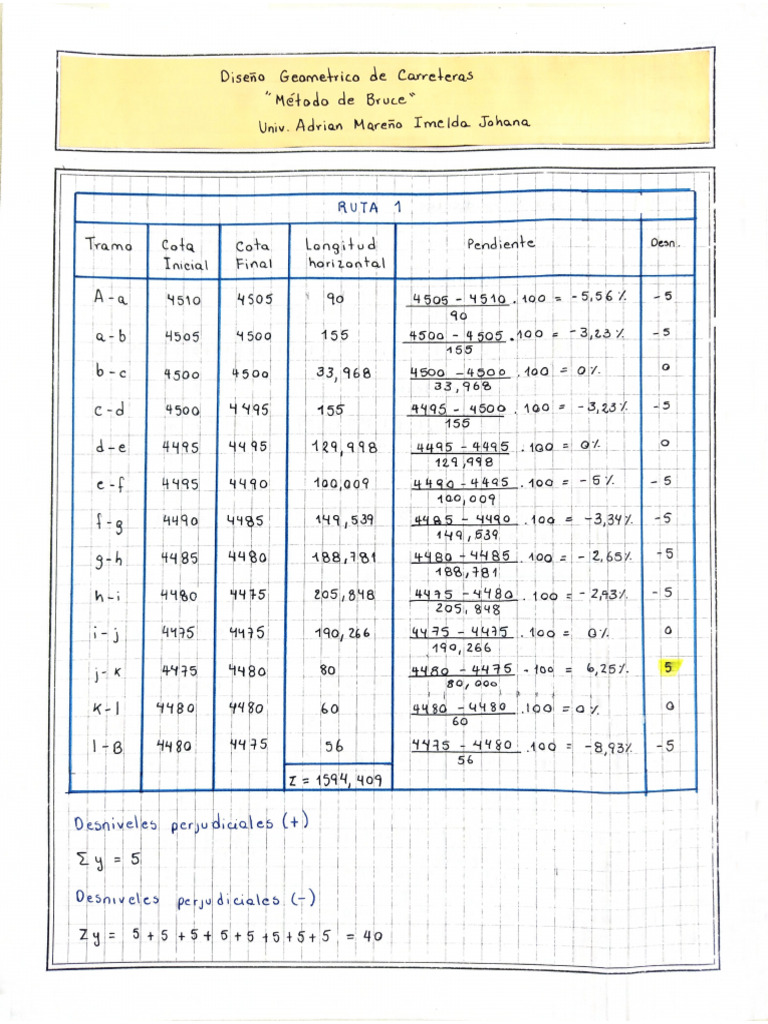 Diseño Geometrico de Carreteras
"Método de Bruce"
Univ. Adrian Mareño Imelda Johana
RUTA 1
Tramo Cota Inicial Cota Final Longitud horizontal Pendiente Desn.
A-a 4510 4505 90 4505 - 4510 / 90 . 100 = -5,56% -5
a-b 4505 4500 155 4500 - 4505 / 155 . 100 = -3,23% -5
b-c 4500 4500 33,968 4500 - 4500 / 33,968 . 100 = 0% 0
c-d 4500 4495 155 4495 - 4500 / 155 . 100 = -3,23% -5
d-e 4495 4495 129,998 4495 - 4495 / 129,998 . 100 = 0% 0
e-f 4495 4490 100,009 4490 - 4495 / 100,009 . 100 = -5% -5
f-g 4490 4485 149,539 4485 - 4490 / 149,539 . 100 = -3,34% -5
g-h 4485 4480 188,781 4480 - 4485 / 188,781 . 100 = -2,65% -5
h-i 4480 4475 205,848 4475 - 4480 / 205,848 . 100 = -2,43% -5
i-j 4475 4475 190,266 4475 - 4475 / 190,266 . 100 = 0% 0
j-k 4475 4480 80 4480 - 4475 / 80,000 . 100 = 6,25% 5
k-l 4480 4480 60 4480 - 4480 / 60 . 100 = 0% 0
l-B 4480 4475 56 4475 - 4480 / 56 . 100 = -8,93% -5
Σ = 1594,409
Desniveles perjudiciales (+)
Σy = 5
Desniveles perjudiciales (-)
Σy = 5+5+5+5+5+5+5+5 = 40